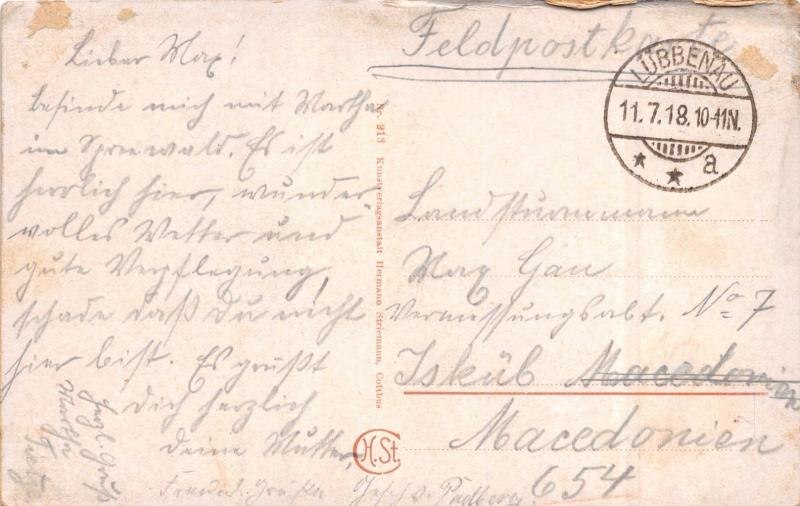 Feldpostkarte
LÜBBENAU
11.7.18.10-11N.
* * a
Lieber Max!
Befinde mich mit Martha
im Spreewald. Es ist
herrlich hier, wunder-
volles Wetter und
gute Verpflegung,
schade daß Du nicht
hier bist. Es grüßt
Dich herzlich
Deine Mutter.
Herzl. Gruß
Martha
Freundl. Grüße
Nr. 213 Kunstverlagsanstalt Hermann Striemann, Cottbus
H. St. C
Landsturmmann
Max Gau
Vermessungsabt. No 7
Isküb Macedonien
Macedonien
654